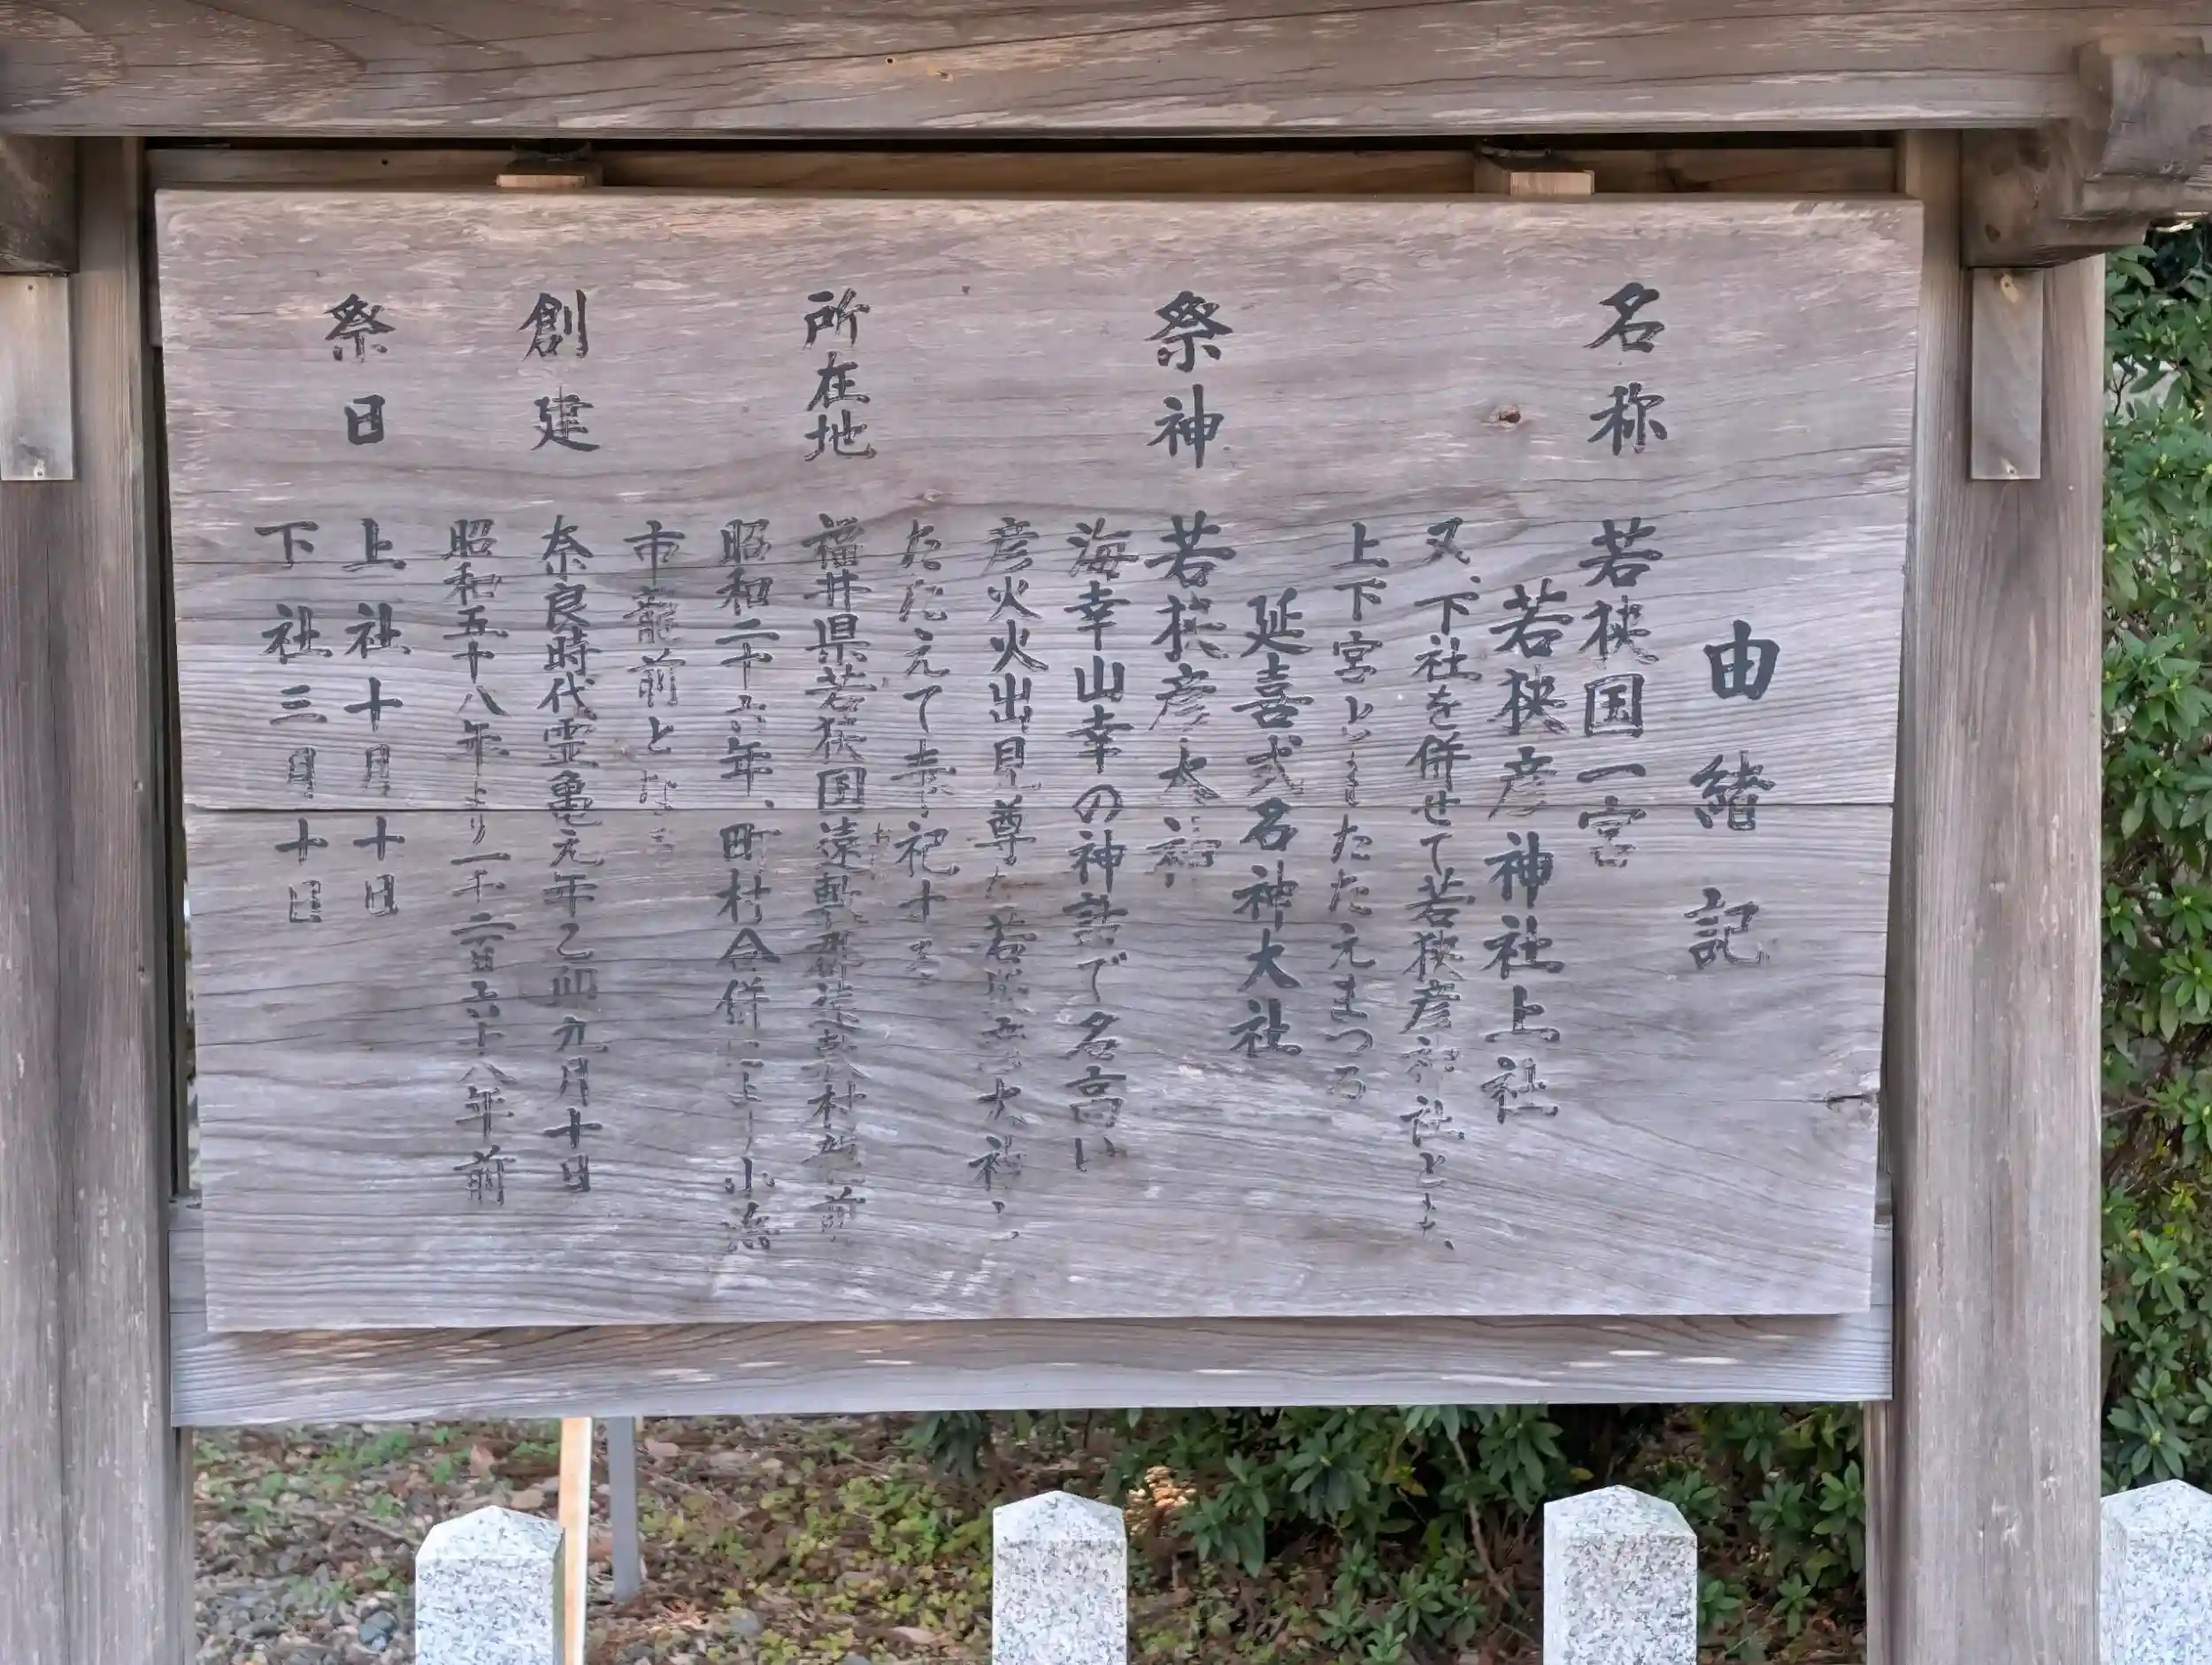 由緒記
名称 若狭国一宮
若狭彦神社上社
又、下社を併せて若狭彦神社と
上下宮とたたえまつる
延喜式名神大社
祭神 若狭彦大神
海幸山幸の神話で名高い
彦火火出見尊 若狭 大神
たたえて 祀
所在地 福井県若狭国遠敷郡遠敷村龍前
昭和二十六年、町村合併により小浜
市龍前と
創建 奈良時代霊亀元年乙卯九月十日
昭和五十八年より一千二百六十八年前
祭日 上社十月十日
下社三月十日